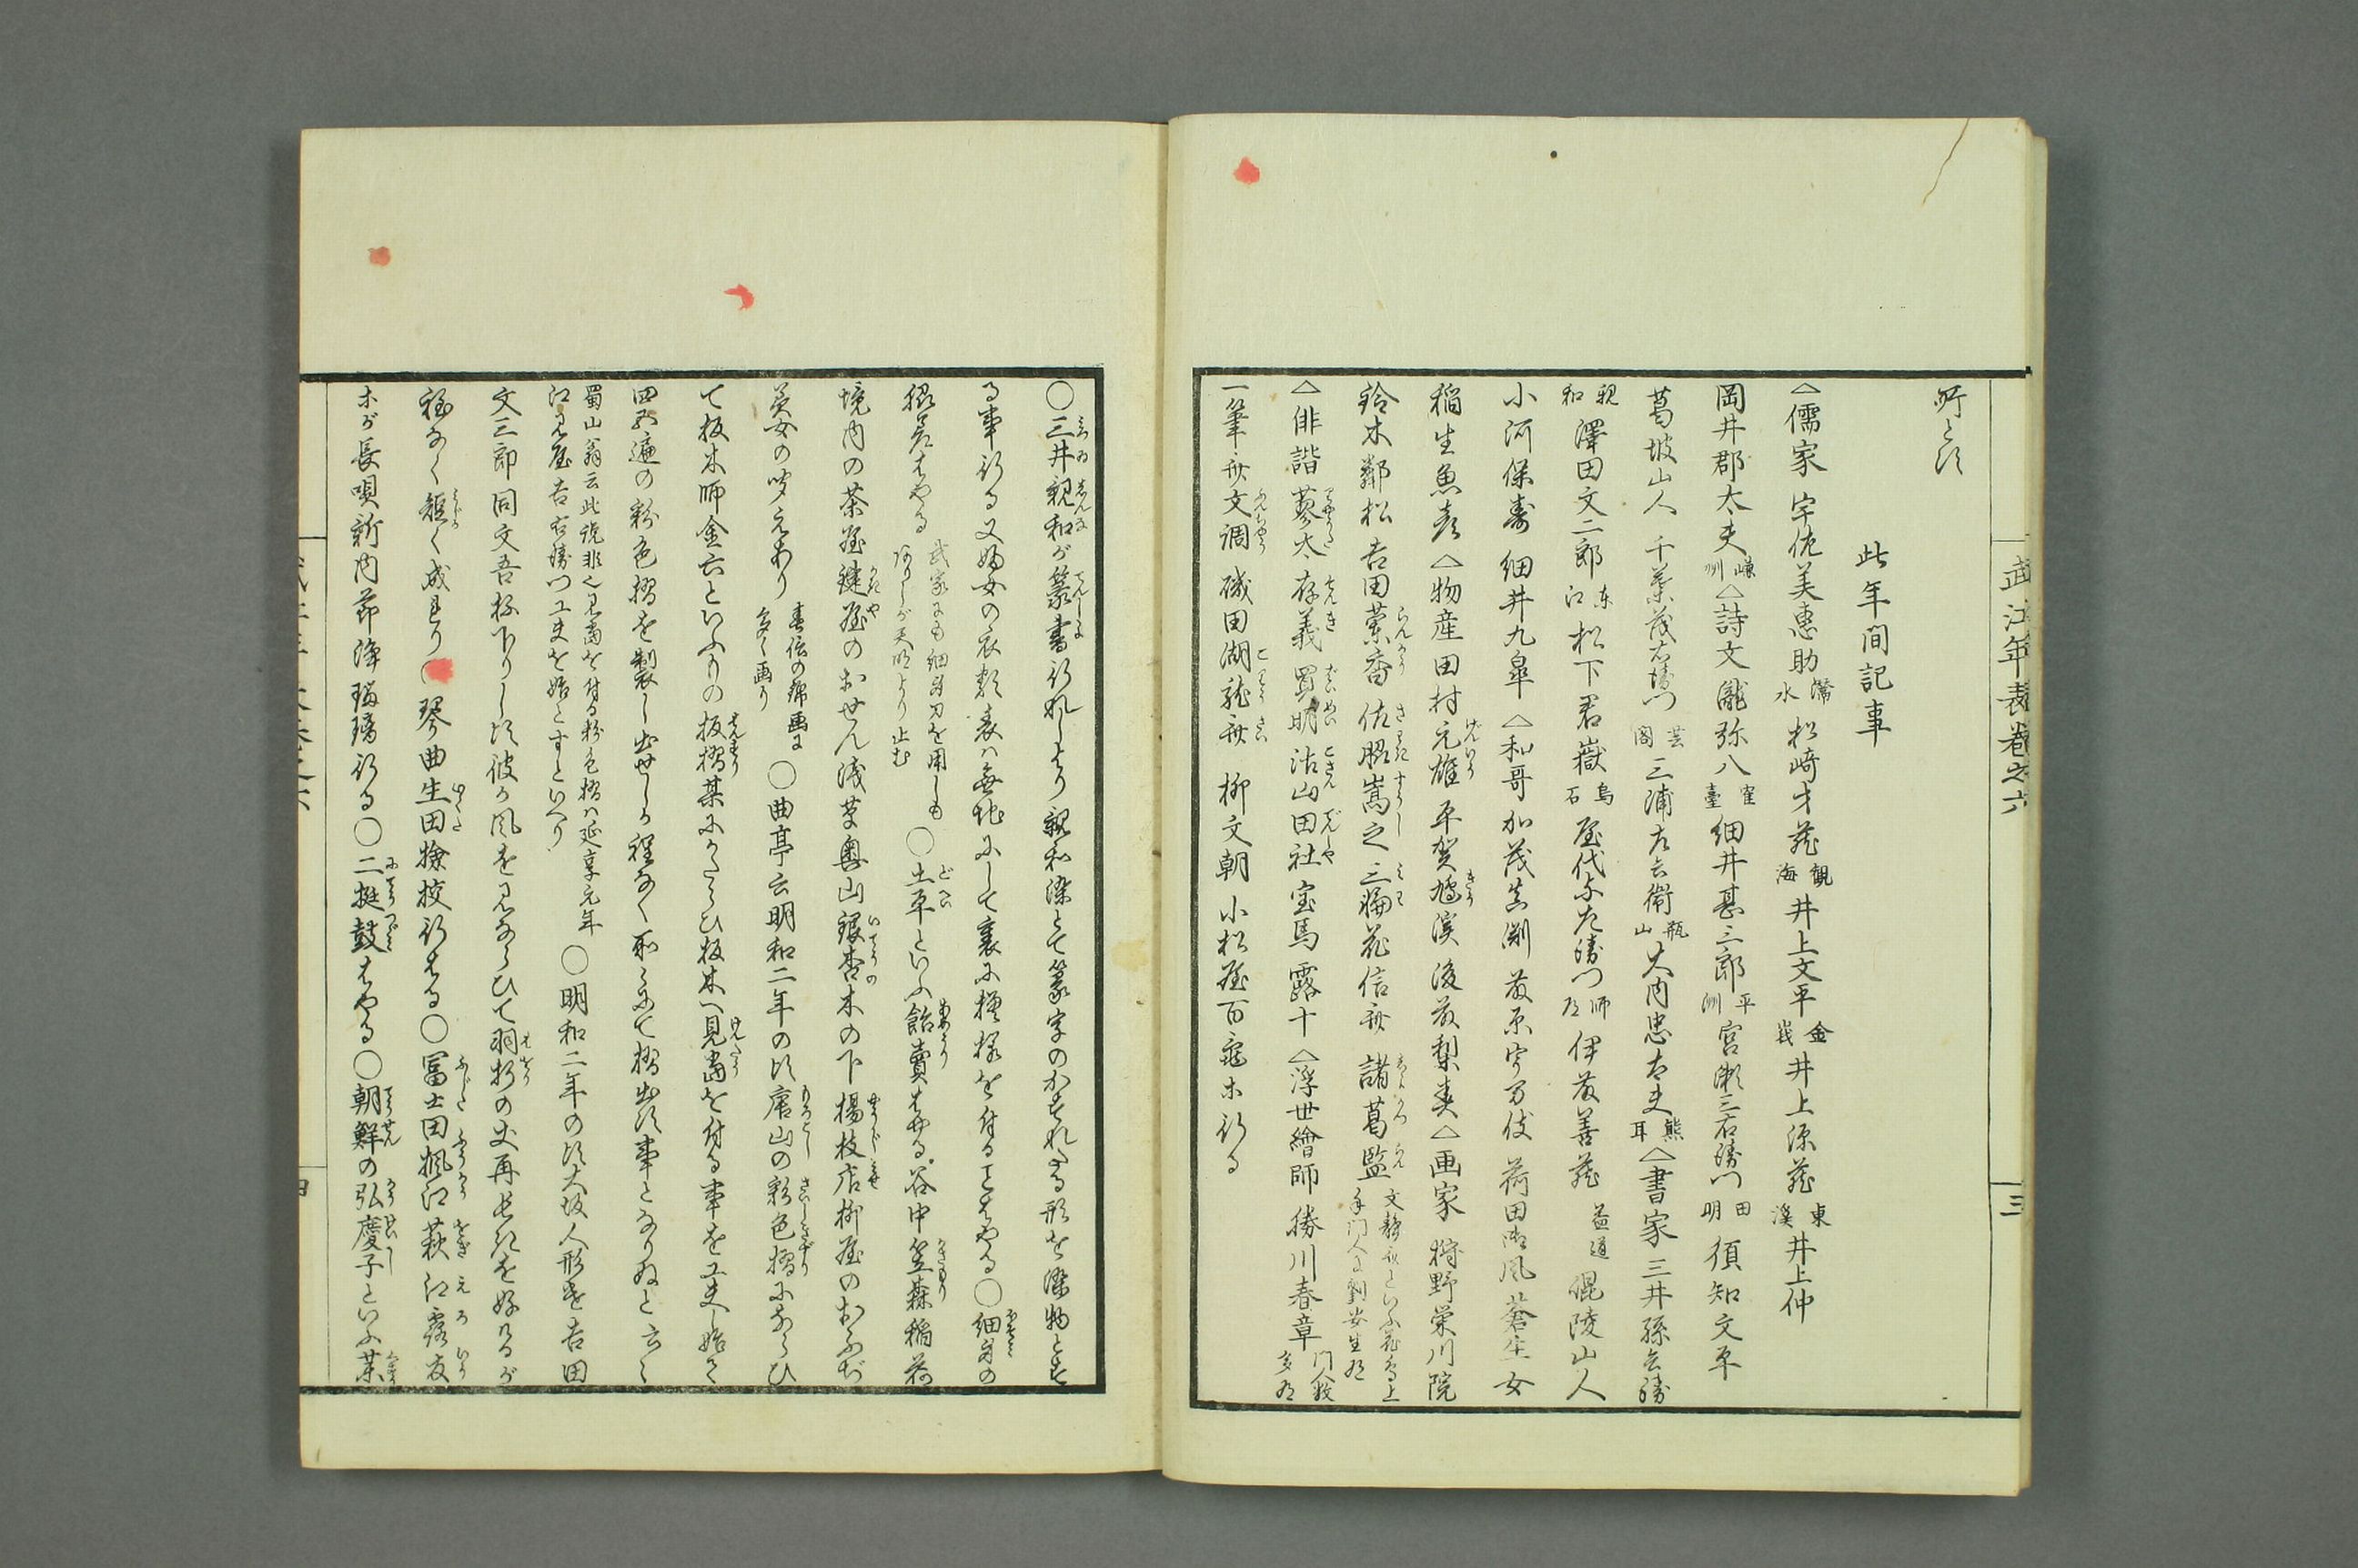 武江年表巻之六
三
町とす
此年間記事
△儒家 宇佐美恵助灊水 松崎才蔵観海 井上文平金峩 井上源蔵東渓 井上仲
岡井郡太夫嵰洲 △詩文 瀧弥八寉臺 細井甚三郎平洲 宮瀬三右衛門 田明 須知文平
葛坡山人 千葉茂右衛門芸閣 三浦左兵衛瓶山 大内忠太夫熊耳 △書家 三井孫兵衛
親和 澤田文二郎東江 松下君嶽烏石 屋代弥左衛門師道 伊藤善蔵益道 混陵山人
小河保寿 細井九皐 △和哥 加茂真渕 藤原宇万伎 荷田御風 蒼生女
稲生魚彦 △物産 田村元雄 平賀鳩渓 後藤梨春 △画家 狩野栄川院
鈴木鄰松 吉田蘭香 佐脇嵩之 三輪花信斎 諸葛監
△俳諧 蓼太 存義 買明 沾山 田社 宝馬 露十 △浮世繪師 勝川春章門人数多有
一筆斎文調 磯田湖龍斎 柳文朝 小松屋百亀ホ行る
〇三井親和が篆書行れしより親和染とて篆字のかすれたる形を染物とす
る事行る又婦女の衣類表は無地にして裏に模様を付ることはやる〇細身の
脇差はやる武家にも細身刀を用しもありしが天明より止む〇土平といふ飴賣はやる谷中笠森稲荷
境内の茶屋鍵屋のおせん浅草奥山銀杏木の下楊枝店柳屋のおふぢ
美女の聞えあり春信の錦画に多く画り〇曲亭云明和二年の頃唐山の彩色摺にならひ
て板木師金六といふもの板摺某にかたらひ板木へ見當を付る事を工夫し始て
四五遍の彩色摺を製し出せしが程なく所々にて摺出す事となりぬと云々
蜀山翁云此説非也見當を付る彩色摺は延享元年江見屋吉右衛門工夫を始とすといへり〇明和二年の頃大坂人形遣吉田
文三郎同文吾抔下りし頃彼が風を見ならひて羽折の丈再長きを好けるが
程なく短く成たり〇琴曲生田撿挍行はる〇冨士田楓江荻江露友
ホが長唄新内節浄瑠璃行る〇二挺鼓はやる〇朝鮮の弘慶子といふ薬